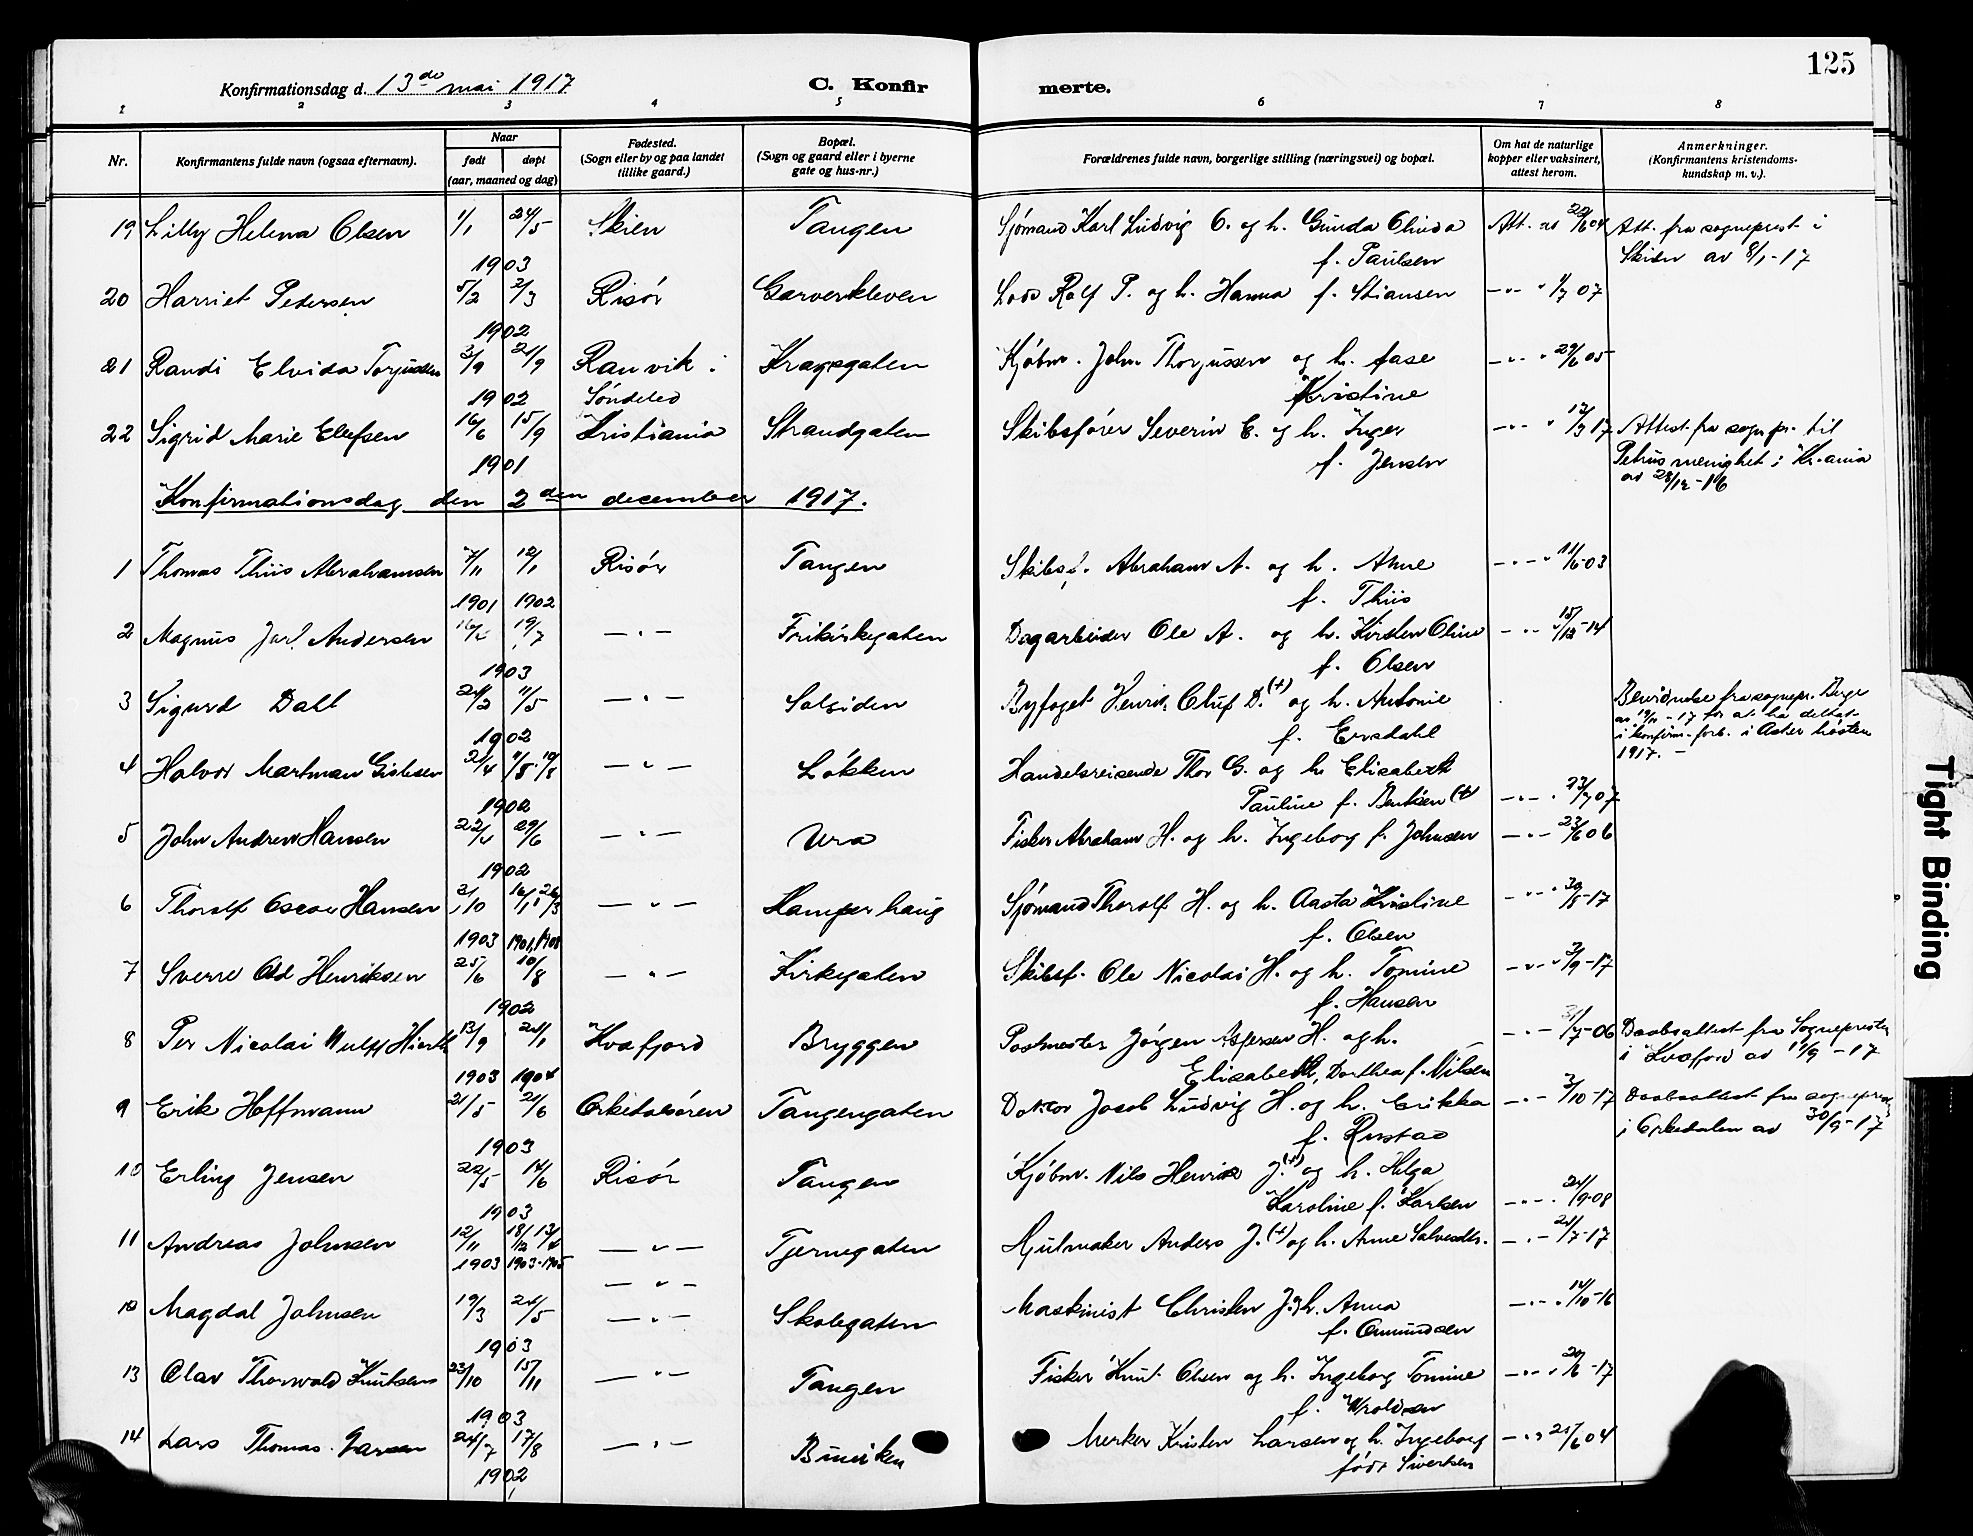 125
Konfirmationsdag d. 13de mai 1917 C. Konfir merte.
1 2 3 4 5 6 7 8
Nr. Konfirmantens fulde navn (ogsaa efternavn). Naar født døpt (aar, maaned og dag) Fødested. (Sogn eller by og paa landet tillike gaard.) Bopæl. (Sogn og gaard eller i byerne gate og hus-nr.) Forældrenes fulde navn, borgerlige stilling (næringsvei) og bopæl. Om hat de naturlige kopper eller vaksinert, attest herom. Anmerkninger. (Konfirmantens kristendoms-kundskap m. v.).
19 Lilly Helena Olsen 1/1 24/5 Skien Tangen Sjømand Karl Ludvig O. og h. Gunda Olivia Att. av 22/6 04 Att. fra sogneprest i
1903 f. Paulsen Skien av 8/1-17
20 Harriet Pedersen 5/2 2/3 Risør Garverkleven Lods Rolf P. og h. Hanna f. Stiansen — " — 1/7 07
1902
21 Randi Elvida Torjussen 3/9 21/9 Ranvik i Kragsgaten Kjøbm. John Thorjussen og h. Aase — " — 29/6 05
1902 Søndeled Kristine
22 Sigrid Marie Elefsen 16/6 15/9 Kristiania Strandgaten Skibsfører Severin E. og h. Inger — " — 12/3 17 Attest fra sognepr. til
1901 f. Jensen Petrus menighet i Kr.ania
av 28/12-16
Konfirmationsdag den 2den december 1917.
1 Thomas Thiis Abrahamsen 7/11 12/1 Risør Tangen Skibsf. Abraham A. og h. Anne — " — 11/6-03
1901 1902 f. Thiis
2 Magnus Jarl Andersen 19/7 — " — Frikirkegaten Dagarbeider Ole A. og h. Kirsten Oline — " — 15/12-14
1903 f. Olsen
3 Sigurd Dahl 24/2 11/5 — " — Solsiden Byfoget Henrik Oluf D. (+) og h. Antonie Bevidnelse fra sognepr. Berge
1902 f. Ersdahl av 19/11-17 for at ha deltat
i konfirm.-forb. i Asker høsten
1917. —
4 Halvor Martman Gislesen 21/4 — " — Løkken Handelsreisende Thor G. og h. Elisabeth
1902 Pauline f. Bentsen (+) — " — 23/7 07
5 John Andrew Hansen 22/4 29/6 — " — Ura Fisker Abraham H. og h. Ingeborg f. Johnsen — " — 23/6 06
1902
6 Thorolf Oscar Hansen 3/10 16/1 26/3 — " — Kamperhaug Sjømand Thorolf H. og h. Aasta Kristine — " — 30/8-17
1903 f. Olsen
7 Sverre Odd Henriksen 25/6 10/8 — " — Kirkegaten Skibsf. Ole Nicolai H. og h. Tomine — " — 3/9-17
1902 f. Hansen
8 Per Nicolai Wulff Hiorth 13/9 24/1 Kvæfjord Bryggen Postmester Jørgen H. og h. — " — 7-06 Daabsattest fra Sognepresten
1903 1904 Elisabeth Dorthea f. Nilsen i Kvæfjord av 11/9-17
9 Erik Hoffmann 21/5 21/6 Orkedalsøren Tangengaten Doktor Jacob Ludvig H. og h. Erikka — " — 3/10-17 Daabsattest fra sognepresten
1903 f. Rustad i Orkedalen av 30/9-17
10 Erling Jensen 22/5 14/6 Risør Tangen Kjøbm. Nils Henrik J. (+) og h. Helga
1903 Karoline f. Karlsen — " — 24/9-08
11 Andreas Johnsen 12/11 18/12 13/4 — " — Tjernegaten Hjulmaker Anders J. (+) og h. Anne Salvesdtr. — " — 24/7-17
1903 1903-1905
— " —
12 Magdal Johnsen 19/3 24/5 — " — Skolegaten Maskinist Christen J. og h. Anna — " — 14/10-16
1903 f. Amundsen
13 Olav Thorwald Knutsen 23/10 15/11 — " — Tangen Fisker Knut Olsen og h. Ingeborg Tomine — " — 20/6-17
1903 f. Wroldsen
14 Lars Thomas Larsen 24/7 17/8 — " — Buviken Merker Kristen Larsen og h. Ingeborg — " — 21/6 04
1902 født Sivertsen
Tight Binding